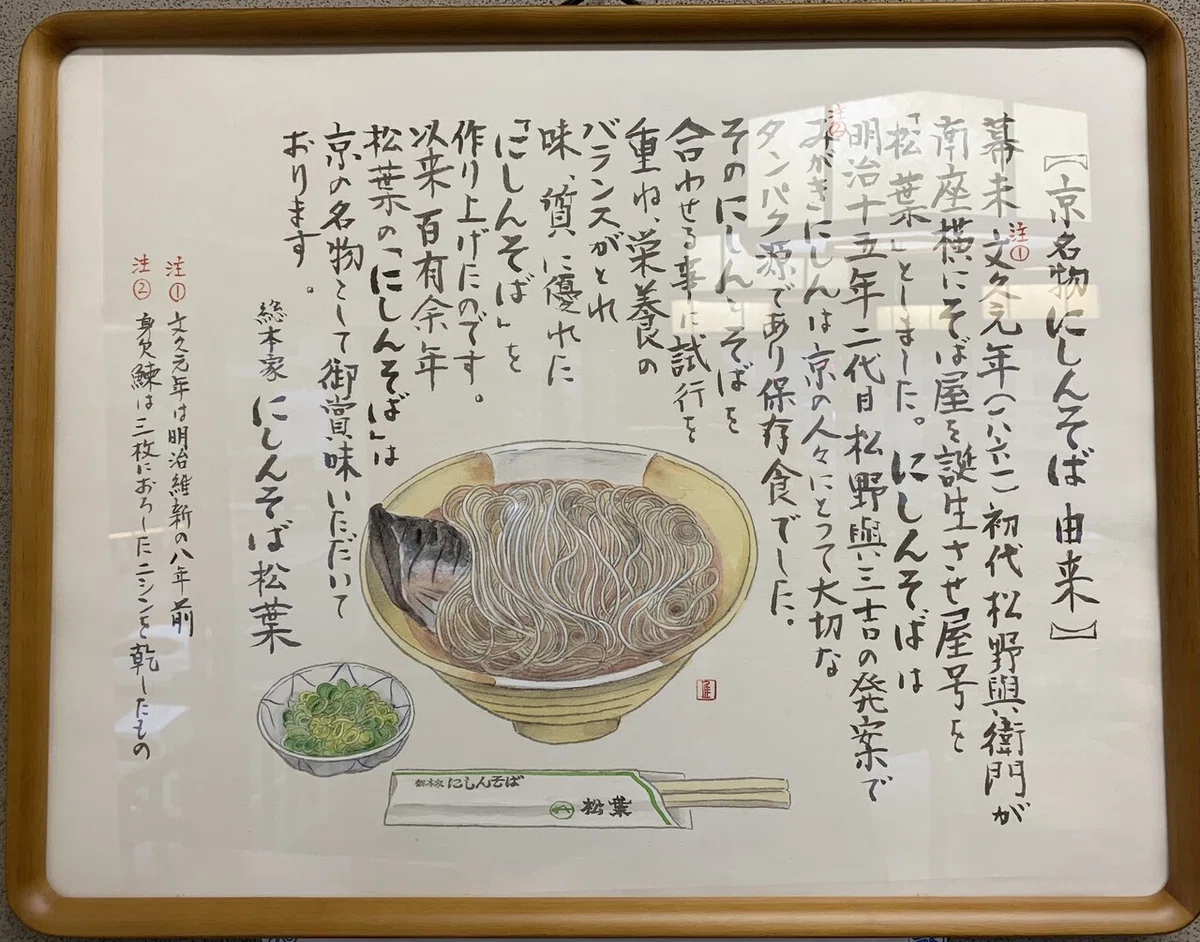 【京名物にしんそば由来】
注①
幕末文久元年(一八六一)初代松野與衛門が
南座横にそば屋を誕生させ屋号を
「松葉」としました。にしんそばは
明治十五年二代目松野與三吉の発案で
注②
みがきにしんは京の人々にとって大切な
タンパク源であり保存食でした。
そのにしんとそばを
合わせる事に試行を
重ね、栄養の
バランスがとれ
味、質に優れた
「にしんそば」を
作り上げたのです。
以来百有余年
松葉の「にしんそば」は
京の名物として御賞味いただいて
おります。
総本家 にしんそば松葉
注① 文久元年は明治維新の八年前
注② 身欠鰊は三枚におろしたニシンを乾したもの
総本家 にしんそば
松葉